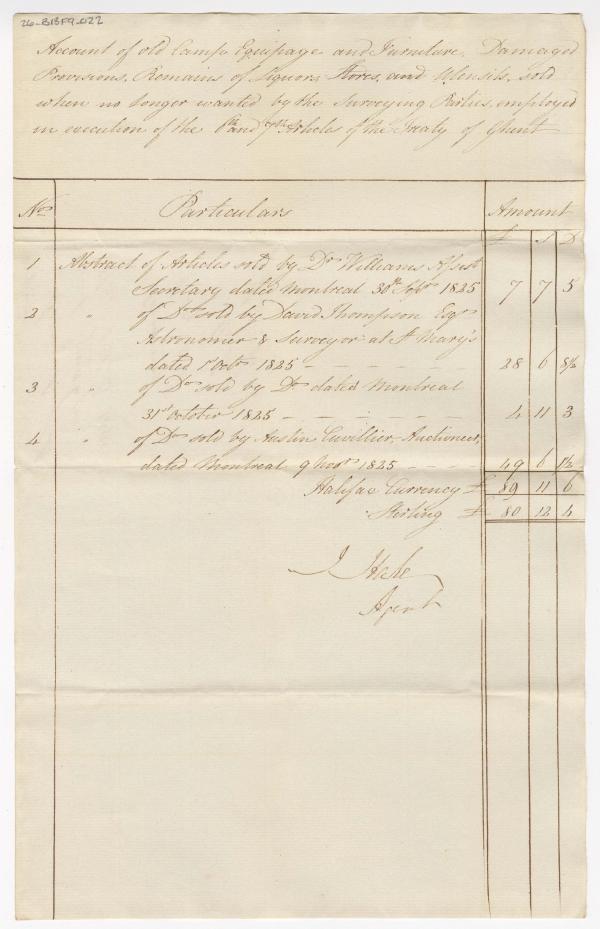 26-B1BF9-022
Account of old Camp Equipage and Furniture, Damaged
Provisions, Remains of Liquors, Stores, and Utensils, sold
when no longer wanted by the Surveying Parties, employed
in execution of the 6th and 7th Articles of the Treaty of Ghent
No. Particulars Amount
£ S D
1 Abstract of Articles sold by Dr Williams Assist
Secretary dated Montreal 30th Septr 1825 7 7 5
2 " of Do sold by David Thompson Esqr
Astronomer & Surveyor at St Mary's
dated 1st Octr 1825 - - - - - 28 6 8½
3 " of Do sold by Do dated Montreal
31st October 1825 - - - - - - 4 11 3
4 " of Do sold by Austin Cuvillier, Auctioneer,
dated Montreal 9 Novr 1825 - - - - 49 6 1½
Halifax Currency £ 89 11 6
Sterling £ 80 12 4
J Hale
Agent